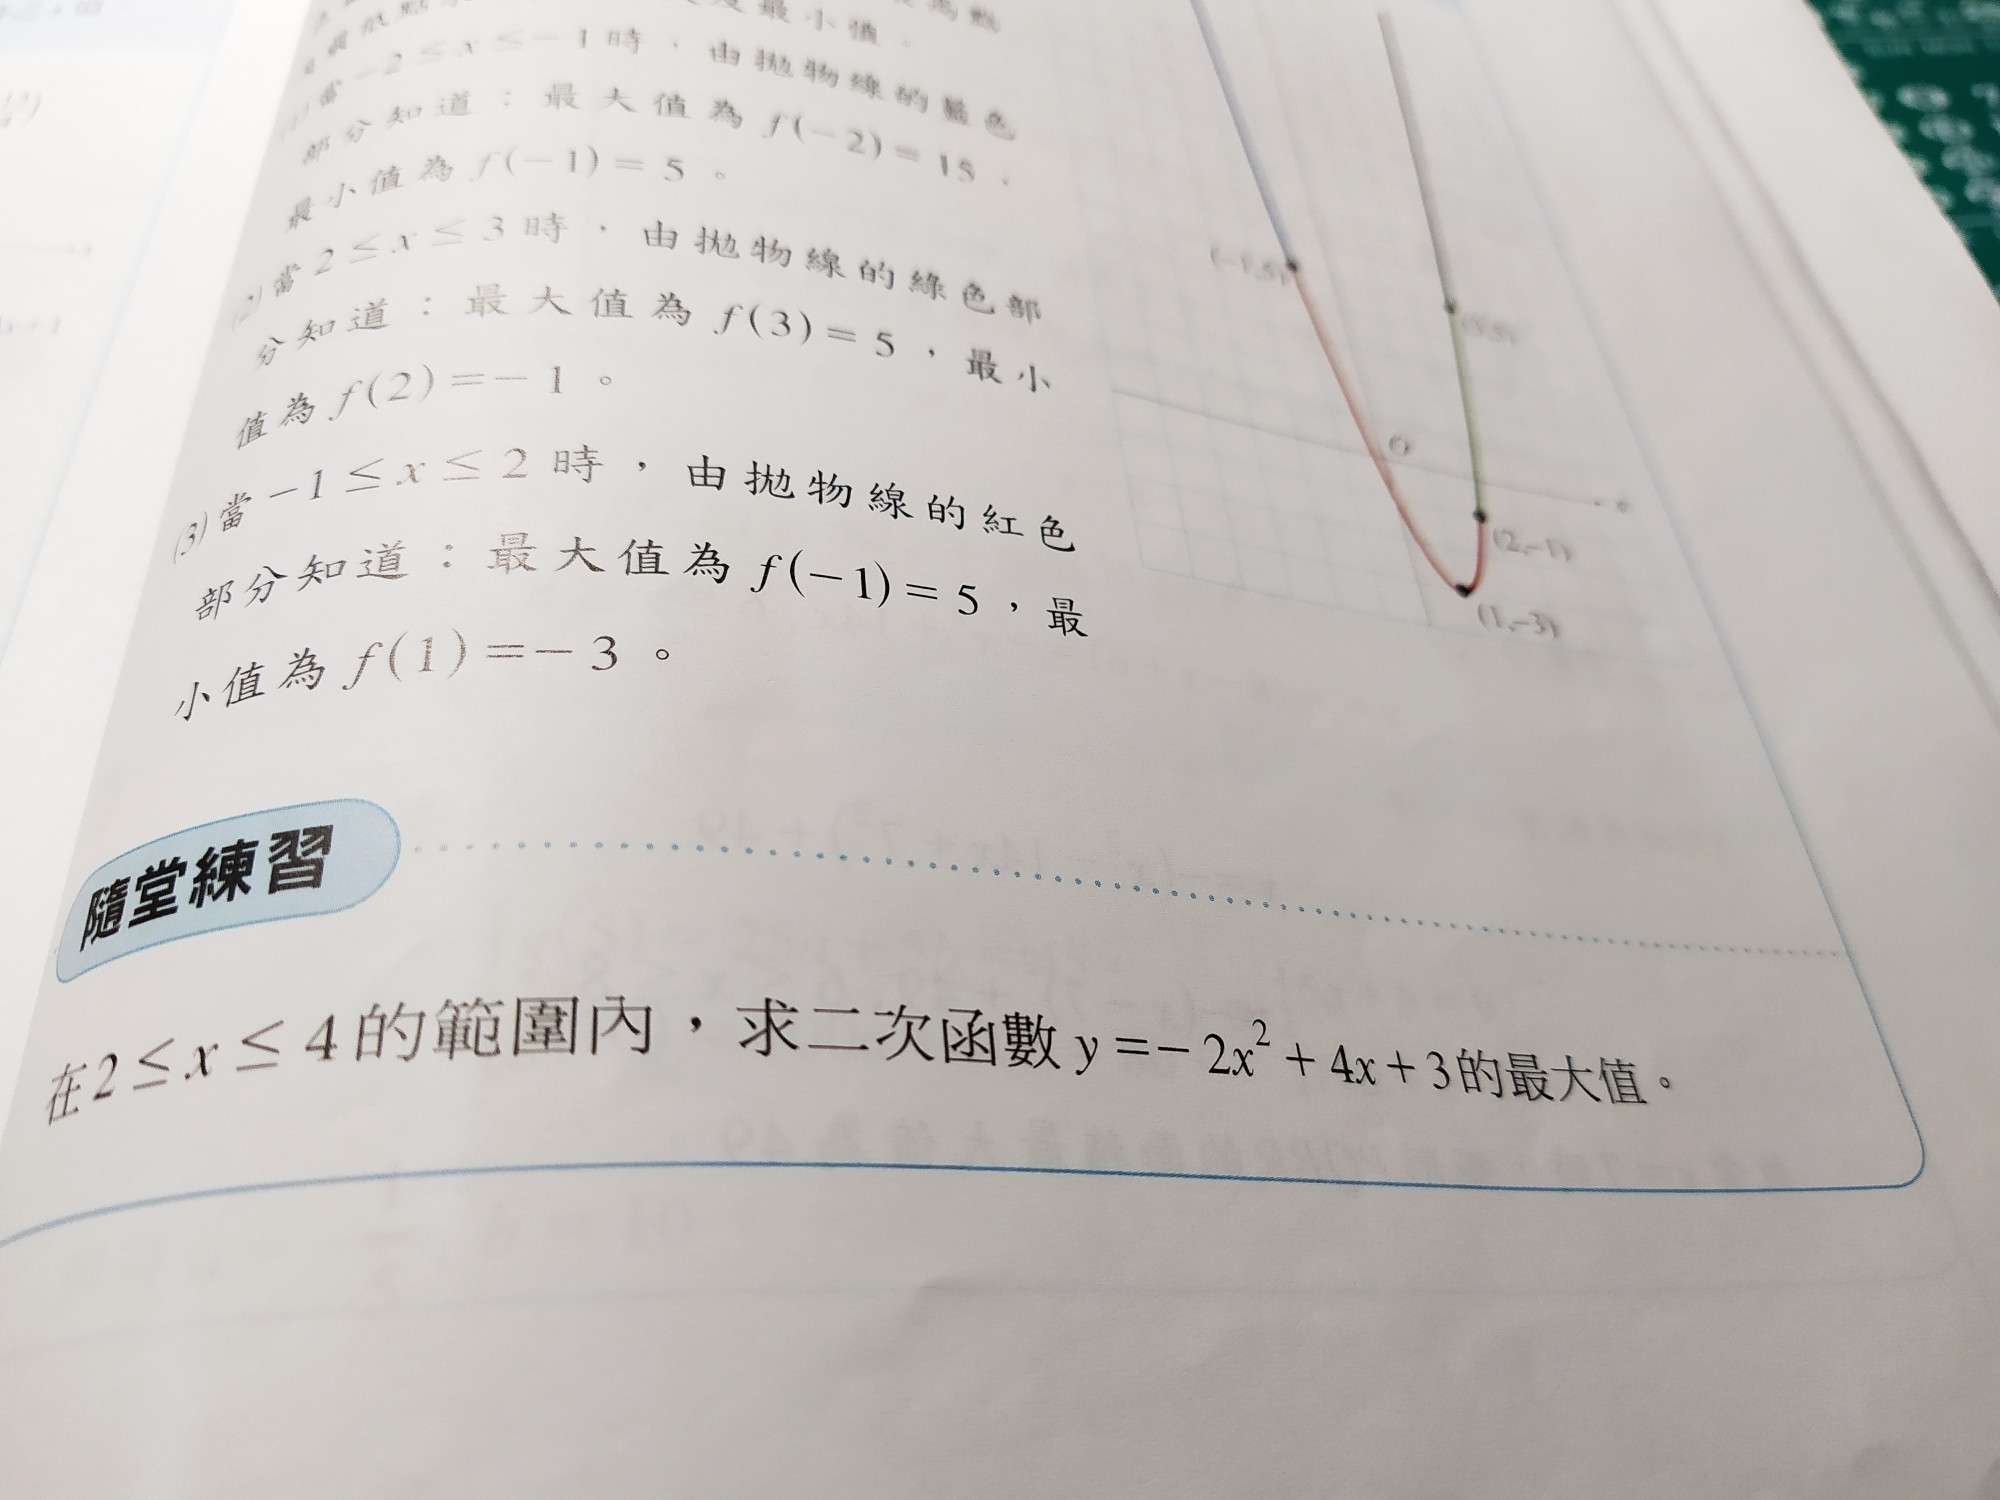 最小值。
(1)當 −2 ≤ x ≤ −1 時，由拋物線的藍色
部分知道：最大值為 f(−2) = 15，
最小值為 f(−1) = 5。
(2)當 2 ≤ x ≤ 3 時，由拋物線的綠色部
分知道：最大值為 f(3) = 5，最小
值為 f(2) = −1。
(3)當 −1 ≤ x ≤ 2 時，由拋物線的紅色
部分知道：最大值為 f(−1) = 5，最
小值為 f(1) = −3。
(−1,5)
(3,5)
O
(2,−1)
(1,−3)
隨堂練習
在 2 ≤ x ≤ 4 的範圍內，求二次函數 y = − 2x² + 4x + 3 的最大值。